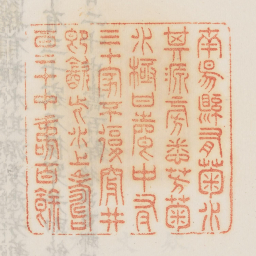 南陽縣有菊水
其源旁悉芳菊
水極甘馨中有
三十家不復穿井
即飲此水上壽
百二十中壽百餘